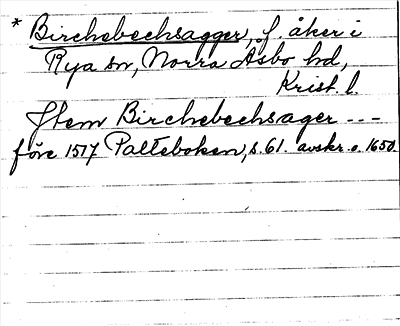 * Birchebechsagger, f. åker i
Rya sn, Norra Åsbo hd,
Krist. l.
Jtem Birchebechsager ---
före 1517 Palteboken, s. 61. avskr. o. 1650.